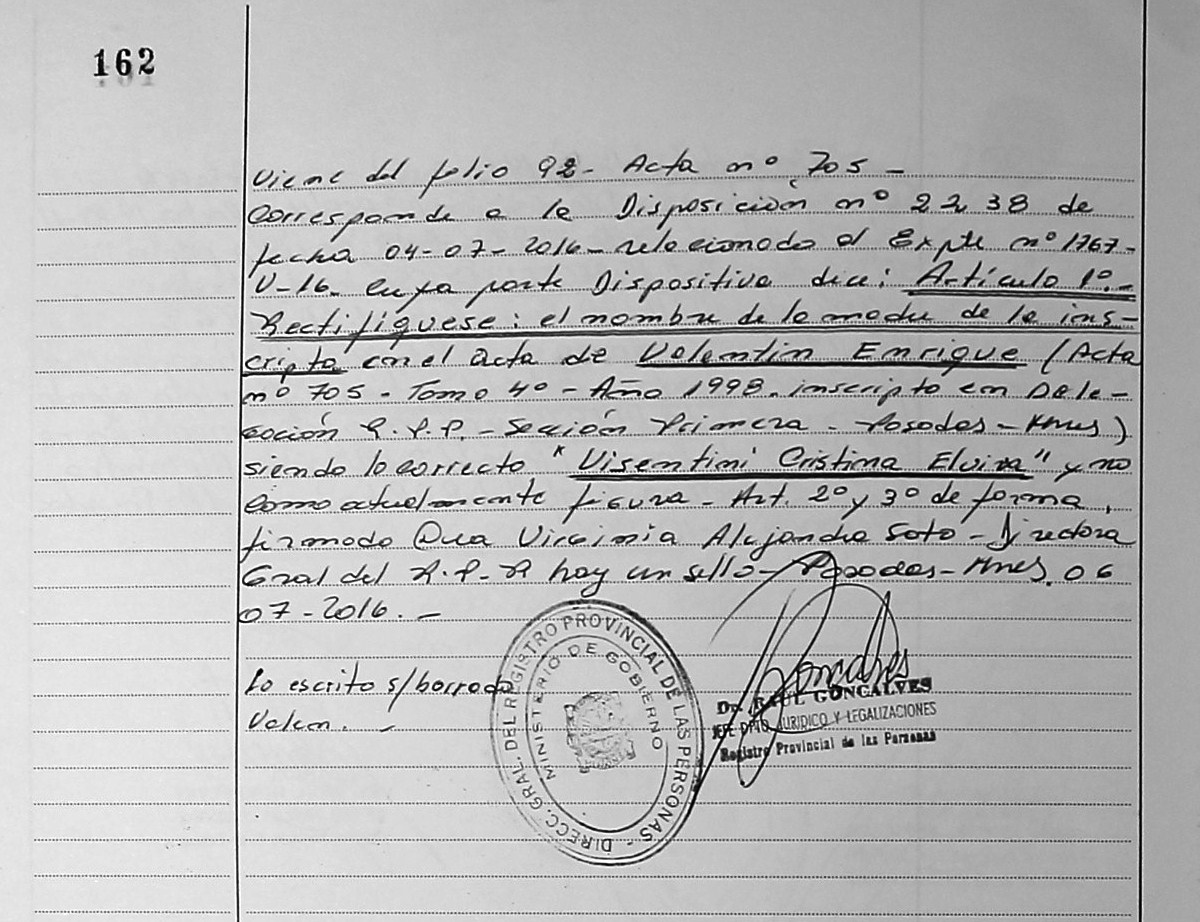 162
Viene del folio 92- Acta nº 705 -
Corresponde a la Disposición nº 2238 de
fecha 04-07-2016- relacionado al Expte nº 1767-
V-16- cuya parte Dispositiva dice: Artículo 1º.-
Rectifiquese: el nombre de la madre de la ins-
cripta en el acta de Valentin Enrique (Acta
nº 705 - Tomo 4º - Año 1998. inscripto en Dele-
gación - Sección Primera - Posadas - Mnes)
siendo lo correcto "Visentini Cristina Elvira" y no
como actualmente figura - Art. 2º y 3º de forma,
firmado Dra Virginia Alejandra Soto - Directora
Gral del R.P.P hay un sello - Posadas - Mnes, 06
07-2016. -
Lo escrito s/borrado
Valen. -
DIRECC. GRAL. DEL REGISTRO PROVINCIAL DE LAS PERSONAS -
MINISTERIO DE GOBIERNO
Dr. RAUL GONCALVES
JEFE DPTO. JURIDICO Y LEGALIZACIONES
Registro Provincial de las Personas